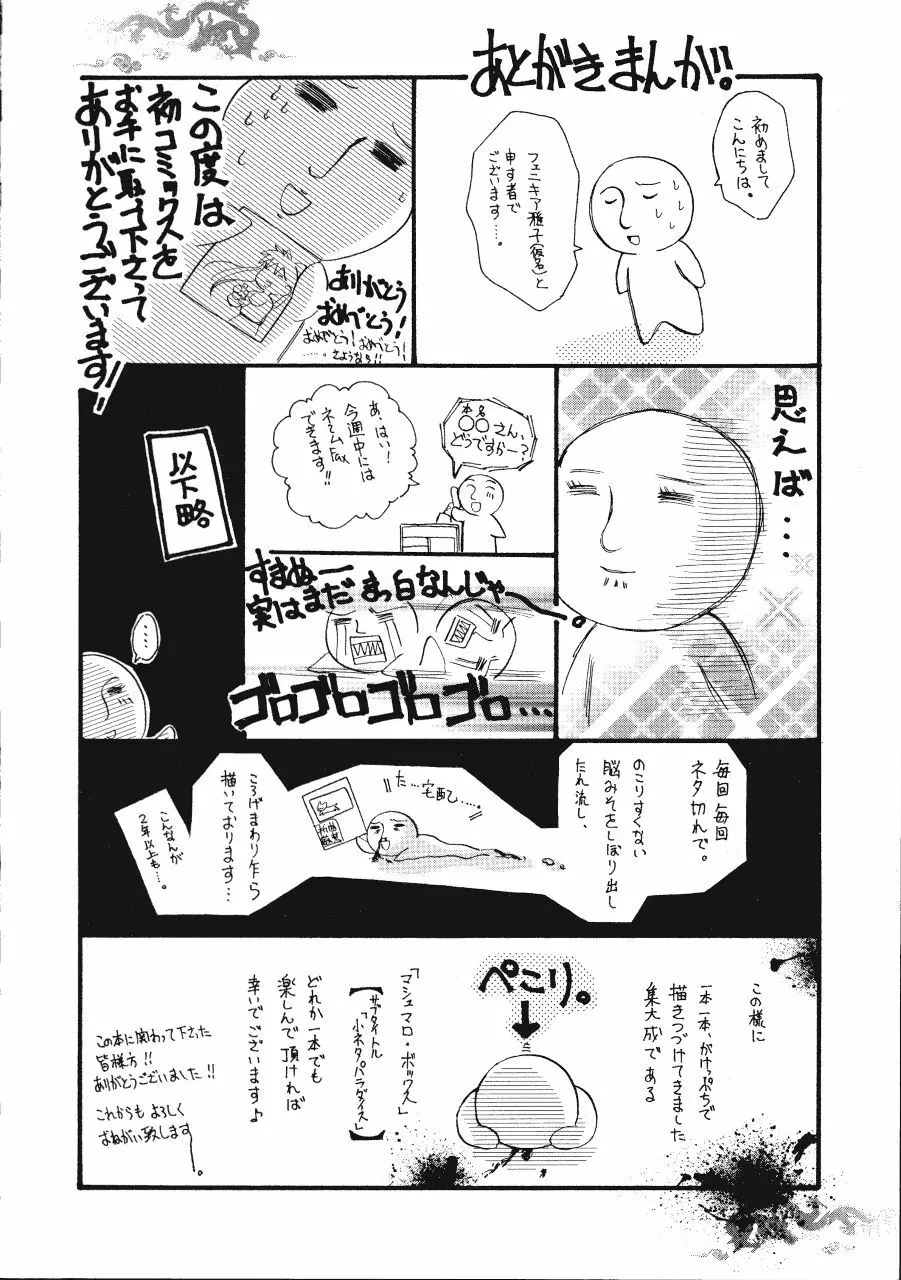 あとがきまんが。
初めまして
こんにちは。
フェニキア雅子(仮名)と
申す者で
ございます…。
この度は
初コミックスを
お手に取って下さって
ありがとうございます!!
ありがとう
おめでとう!
おめでとう!おめでとう!
……さようなら!!
思えば…
本名
○○さん、
どうですかー?
あ、はい!
今週中には
ネームFax
できます!!
すまぬー
実はまだまっ白なんじゃー
ゴロゴロゴロゴロ…
以下略
…
毎回毎回
ネタ切れで。
のこりすくない
脳みそをしぼり出し
たれ流し、
た…宅配…。
ころげまわり乍ら
描いております…
こんなんが
2年以上も…。
この様に
一本一本、がけっぷちで
描きつづけてきました
集大成である
ぺこり。
「マシュマロ・ボックス」
【サブタイトル
「小ネタパラダイス」】
どれか一本でも
楽しんで頂ければ
幸いでございます♪
この本に関わって下さった
皆様方!!
ありがとうございました!!
これからもよろしく
おねがい致します。